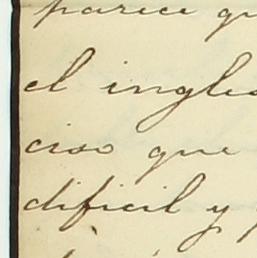 parece qu
el ingles
ciso que
dificil y